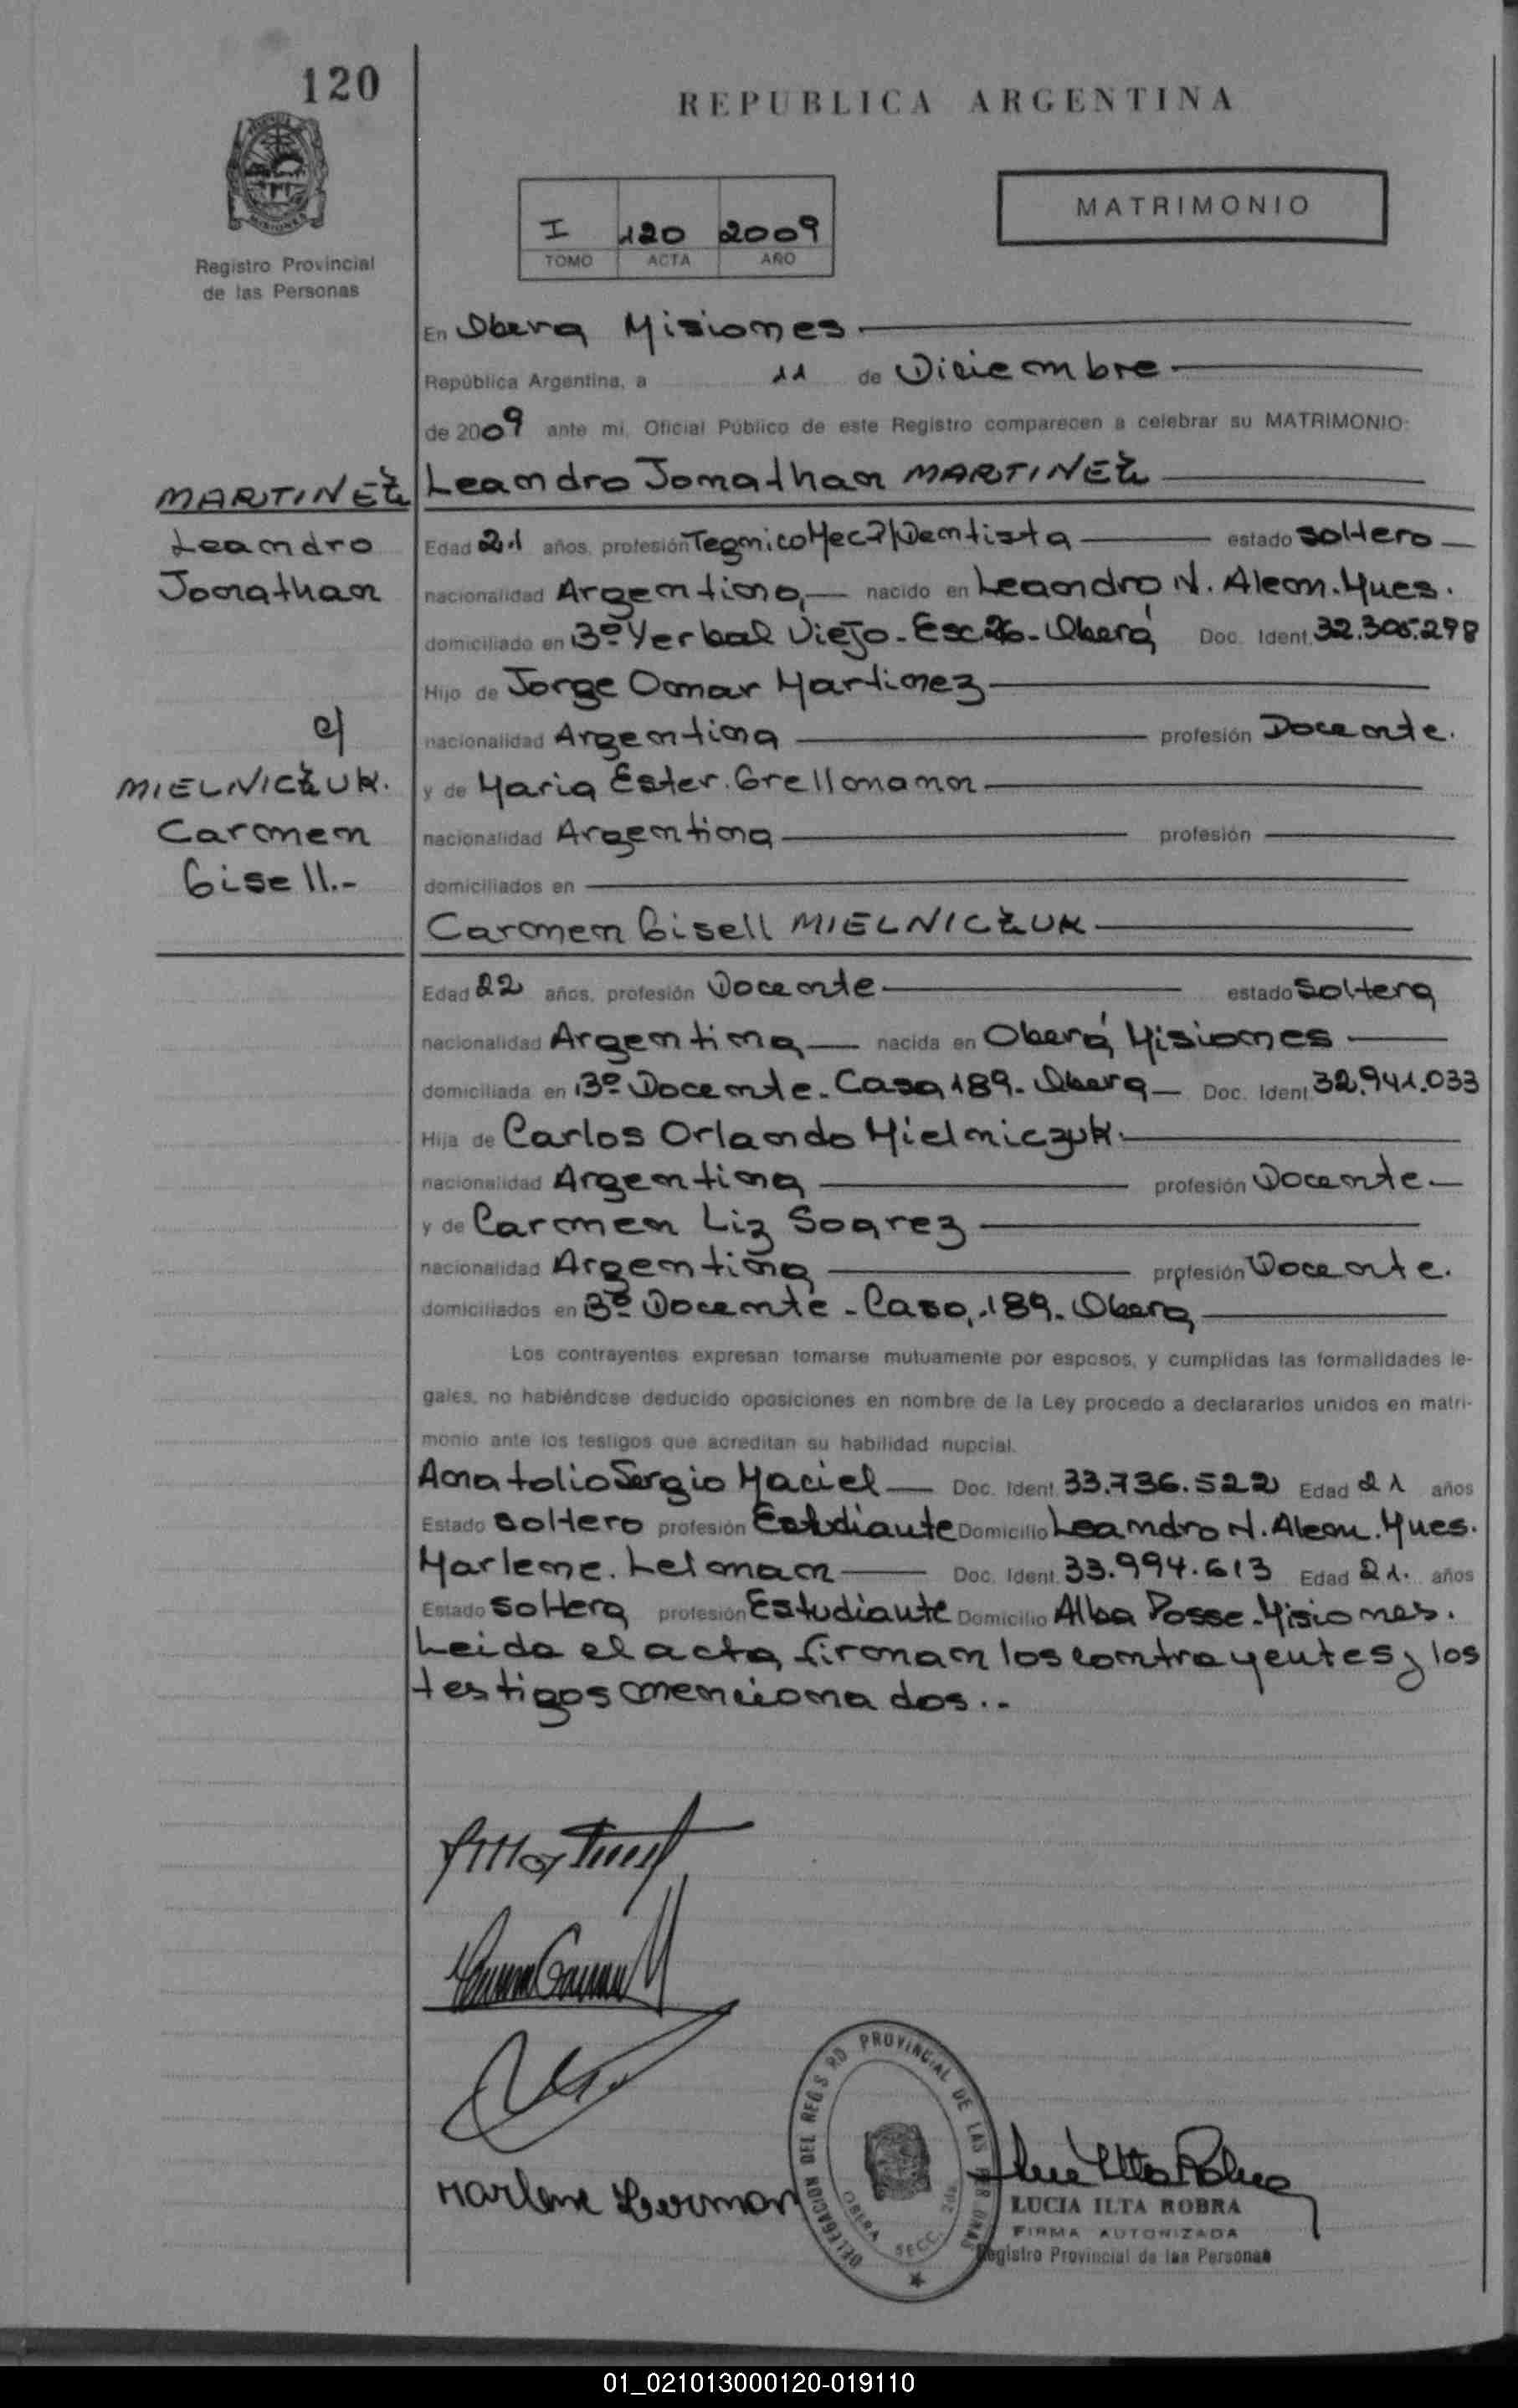 120
REPUBLICA ARGENTINA
MISIONES
Registro Provincial
de las Personas
I 120 2009
TOMO ACTA AÑO
MATRIMONIO
En Obera Misiones
República Argentina, a 11 de Diciembre
de 2009 ante mi, Oficial Público de este Registro comparecen a celebrar su MATRIMONIO:
MARTINEZ
Leandro
Jonathan
c/
MIELNICZUK.
Carmen
Gisell.-
Leandro Jonathan MARTINEZ
Edad 21 años, profesión Tegnico Mec P/Dentista estado soltero
nacionalidad Argentina, nacido en Leandro N. Alem. Mnes.
domiciliado en Bº Yerbal Viejo - Esc. 26 - Oberá Doc. Ident. 32.305.298
Hijo de Jorge Omar Martinez
nacionalidad Argentina profesión Docente.
y de Maria Ester. Grellmann
nacionalidad Argentina profesión
domiciliados en
Carmen Gisell MIELNICZUK
Edad 22 años, profesión Docente estado Soltera
nacionalidad Argentina nacida en Oberá Misiones
domiciliada en Bº Docente - Casa 189 - Obera Doc. Ident. 32.941.033
Hija de Carlos Orlando Mielniczuk.
nacionalidad Argentina profesión Docente
y de Carmen Liz Soarez
nacionalidad Argentina profesión Docente.
domiciliados en Bº Docente - Casa, 189 - Obera
Los contrayentes expresan tomarse mutuamente por esposos, y cumplidas las formalidades le-
gales, no habiéndose deducido oposiciones en nombre de la Ley procedo a declararlos unidos en matri-
monio ante los testigos que acreditan su habilidad nupcial.
Anatolio Sergio Maciel Doc. Ident. 33.736.522 Edad 21 años
Estado soltero profesión Estudiante Domicilio Leandro N. Alem. Mnes.
Marlene. Lelman Doc. Ident. 33.994.613 Edad 21. años
Estado soltera profesión Estudiante Domicilio Alba Posse - Misiones.
Leida el acta, firman los contrayentes y los
testigos mencionados..-
Marlene
DELEGACION DEL REGISRO PROVINCIAL DE LAS PERSONAS
OBERA SECC. 2da
LUCIA ILTA ROBRA
FIRMA AUTORIZADA
Registro Provincial de las Personas
01_021013000120-019110